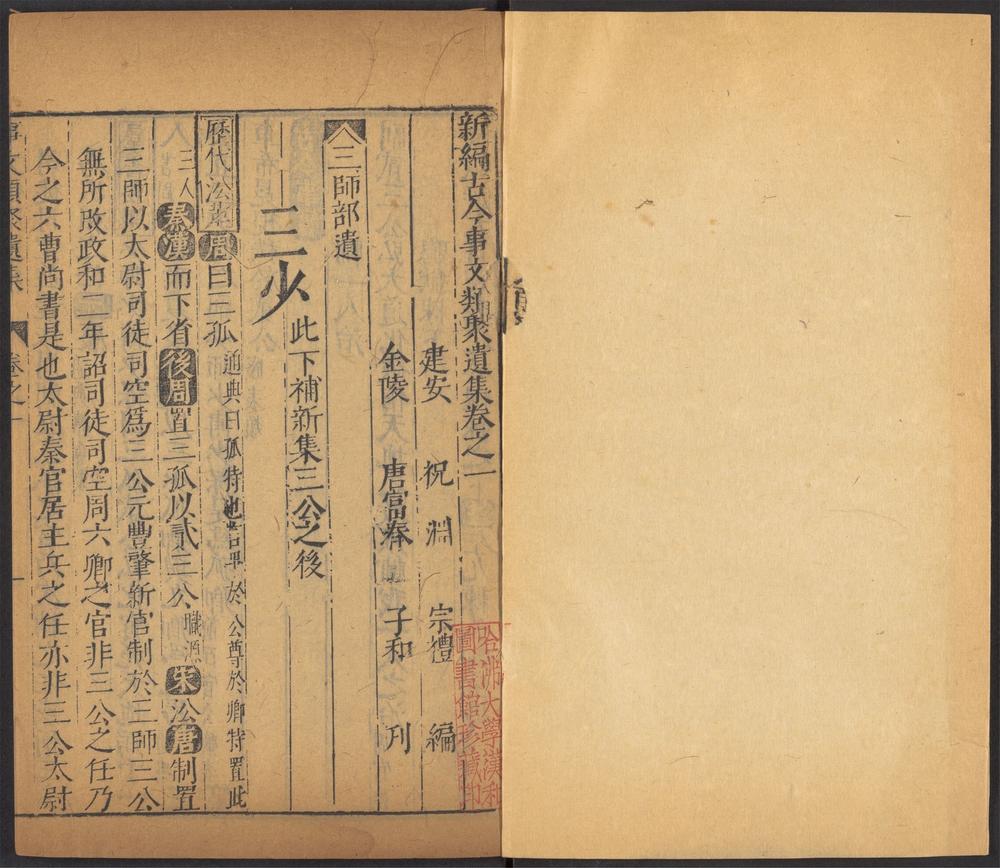 新編古今事文類聚遺集卷之一
建安 祝 淵 宗禮 編
金陵 唐富春 子和 刋
三師部遺
三少 此下補新集三公之後
歷代沿革 周曰三孤 通典曰孤特也言卑於公尊於卿特置此
三人 秦漢而下省後周置三孤以貳三公 職源 宋沿唐制置
三師以太尉司徒司空爲三公元豐肇新官制於三師三公
無所改政和二年詔司徒司空周六卿之官非三公之任乃
今之六曹尚書是也太尉秦官居主兵之任亦非三公太尉
事文類聚遺集 卷之一
哈佛大學漢和
圖書館珍藏印